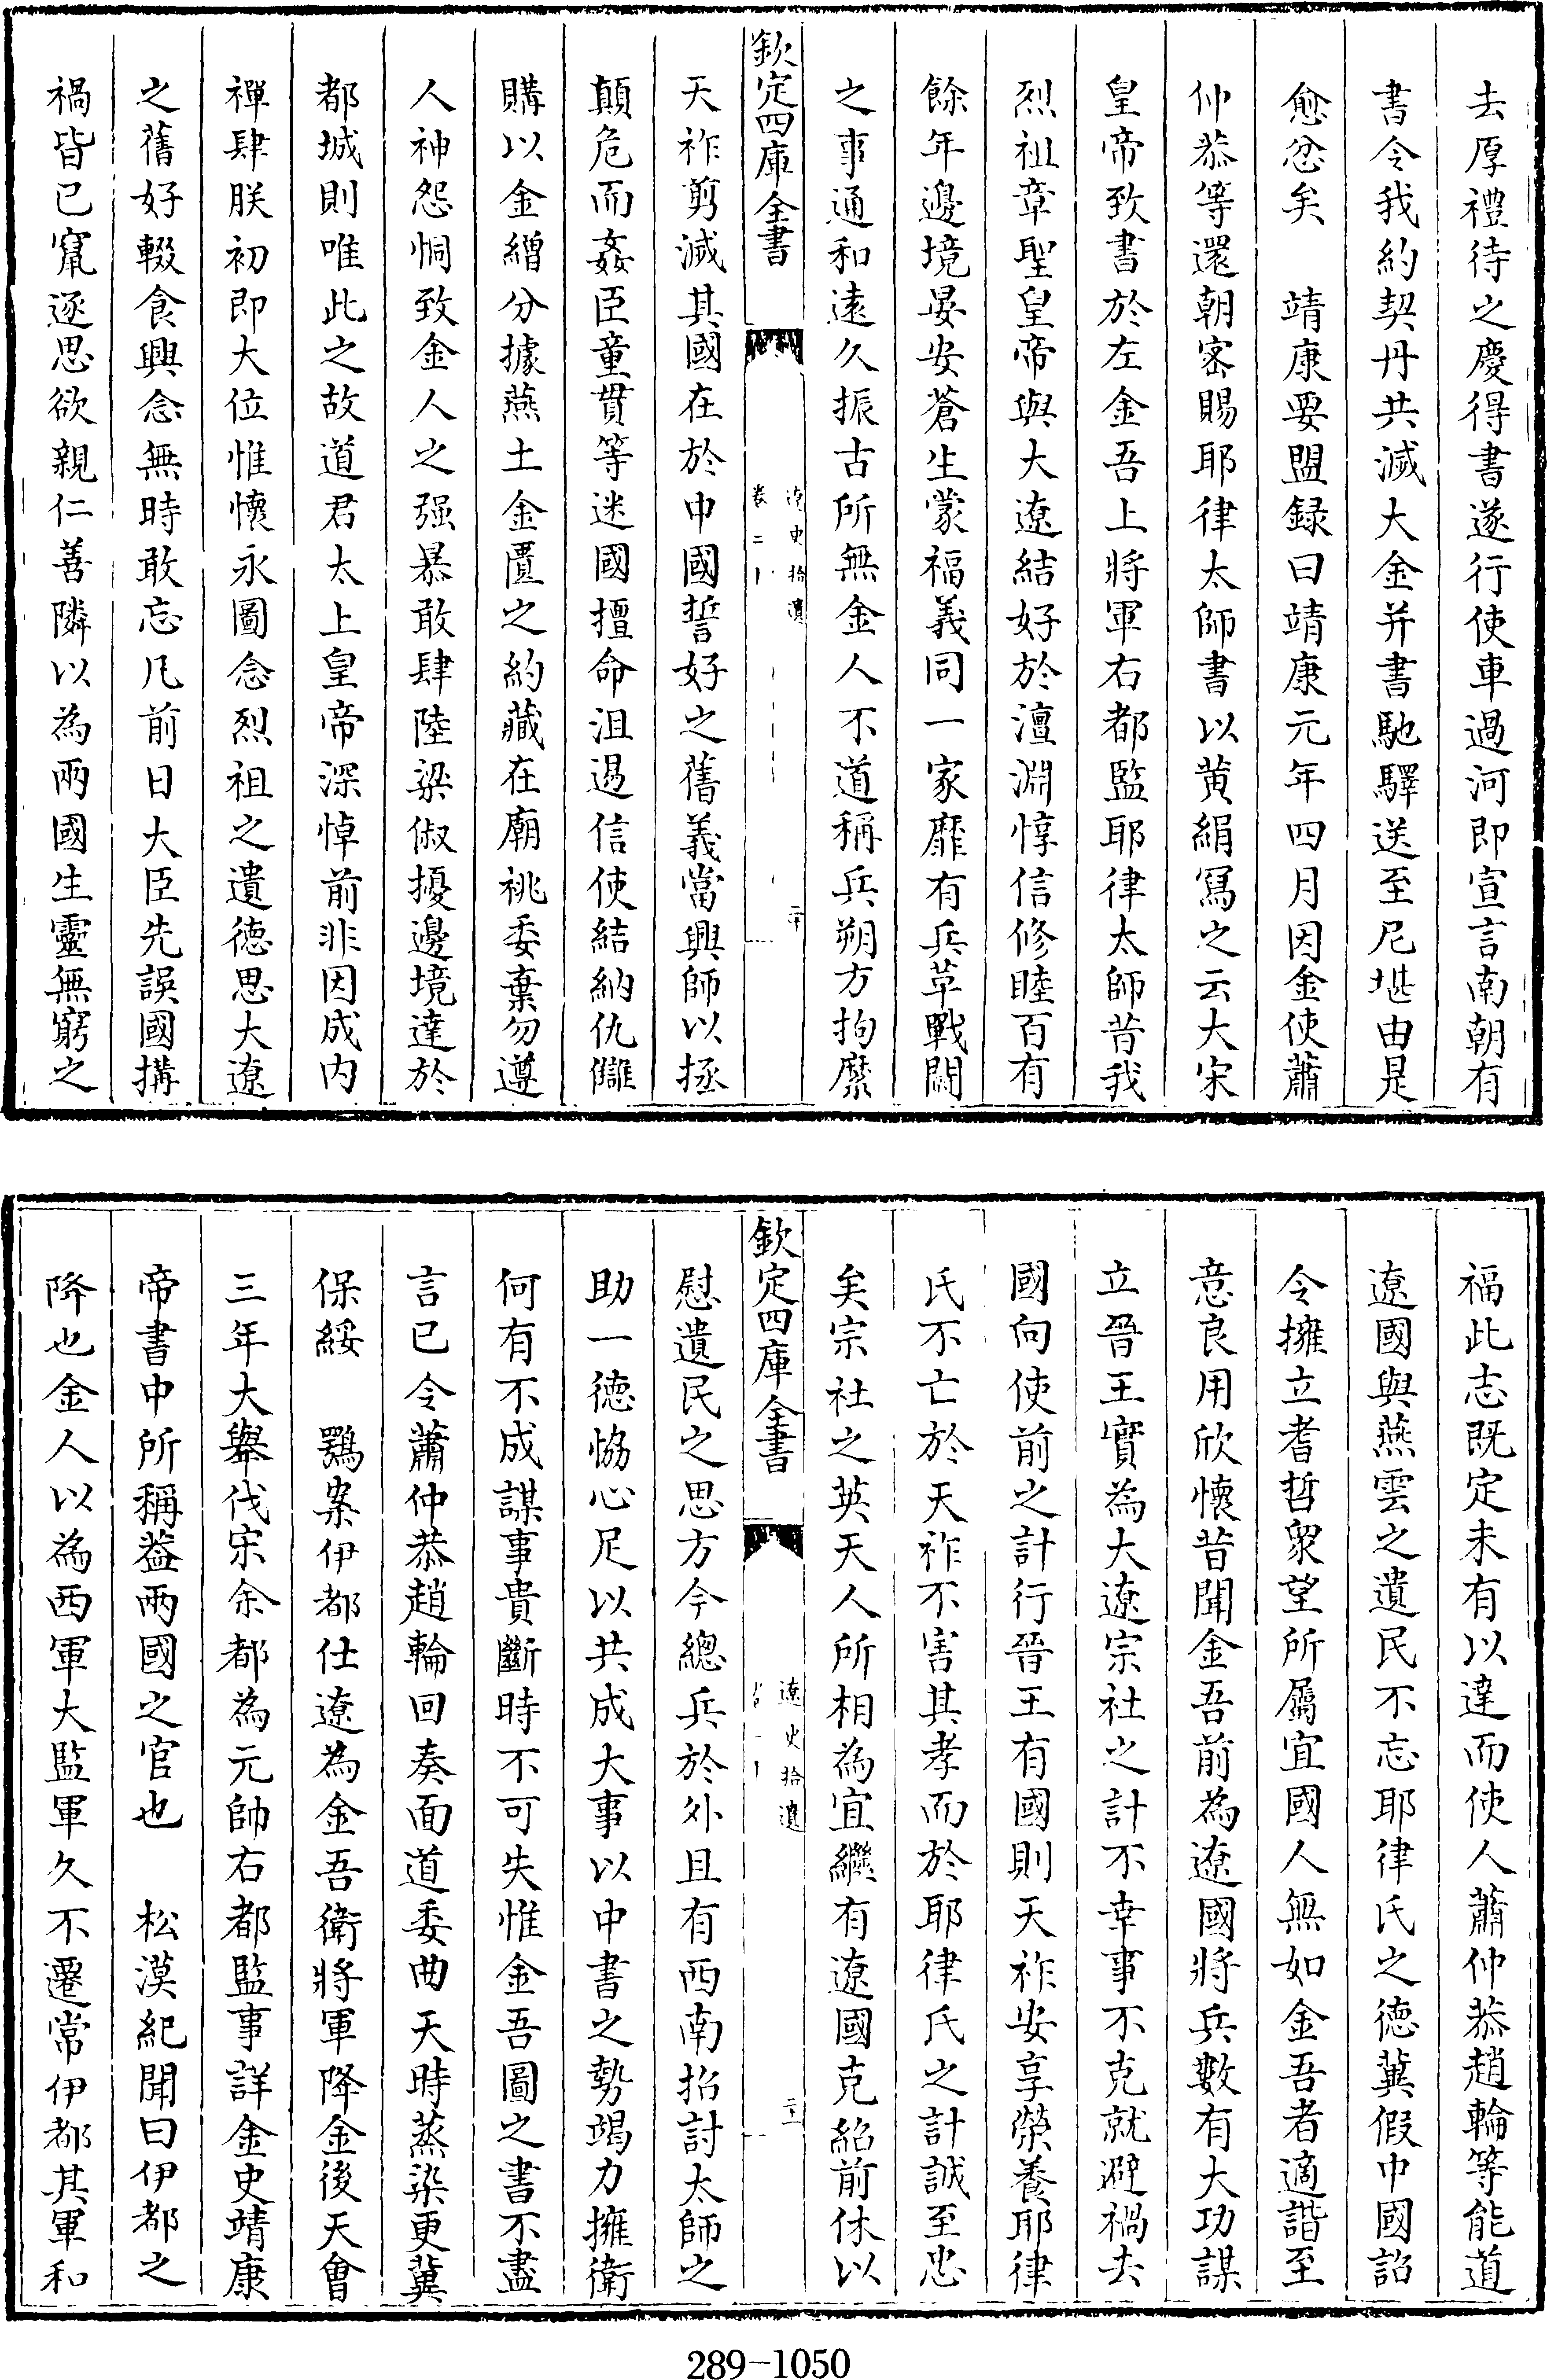 去厚禮待之慶得書遂行使車過河即宣言南朝有
書令我約契丹共滅大金并書馳驛送至尼堪由是
愈忿矣　靖康要盟録曰靖康元年四月因金使蕭
仲恭等還朝密賜耶律太師書以黄絹冩之云大宋
皇帝致書於左金吾上將軍右都監耶律太師昔我
烈祖章聖皇帝與大遼結好於澶淵惇信修睦百有
餘年邊境晏安蒼生蒙福義同一家靡有兵革戰鬬
之事通和遠久振古所無金人不道稱兵朔方拘縻
欽定四庫全書
遼史拾遺
卷二
二十
天祚剪滅其國在於中國誓好之舊義當興師以拯
顛危而姦臣童貫等迷國擅命沮遏信使結納仇讎
購以金繒分據燕土金匱之約藏在廟祧委棄勿遵
人神怨恫致金人之强暴敢肆陸梁俶擾邊境達於
都城則唯此之故道君太上皇帝深悼前非因成内
禪肆朕初即大位惟懷永圖念烈祖之遺德思大遼
之舊好輟食興念無時敢忘凡前日大臣先誤國搆
禍皆已竄逐思欲親仁善隣以為兩國生靈無窮之
福此志既定未有以達而使人蕭仲恭趙輪等能道
遼國與燕雲之遺民不忘耶律氏之德冀假中國詔
令擁立耆哲衆望所屬宜國人無如金吾者適諧至
意良用欣懷昔聞金吾前為遼國將兵數有大功謀
立晉王實為大遼宗社之計不幸事不克就避禍去
國向使前之計行晉王有國則天祚安享榮養耶律
氏不亡於天祚不害其孝而於耶律氏之計誠至忠
矣宗社之英天人所相為宜繼有遼國克紹前休以
欽定四庫全書
遼史拾遺
二十一
慰遺民之思方今總兵於外且有西南招討太師之
助一德恊心足以共成大事以中書之勢竭力擁衛
何有不成謀事貴斷時不可失惟金吾圖之書不盡
言已令蕭仲恭趙輪回奏面道委曲天時蒸染更冀
保綏　鶚案伊都仕遼為金吾衛將軍降金後天會
三年大舉伐宋余都為元帥右都監事詳金史靖康
帝書中所稱葢兩國之官也　松漠紀聞曰伊都之
降也金人以為西軍大監軍久不遷常伊都其軍和
289-1050